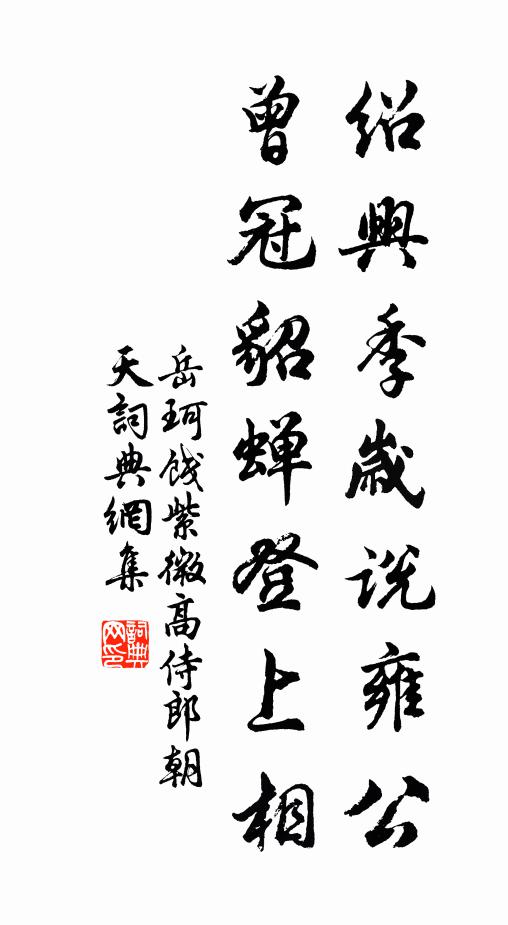 绍興季歲说雍公
曾冠貂蝉登上相
岳珂餞紫微高侍郎朝
天詞典網集
詞典
网印